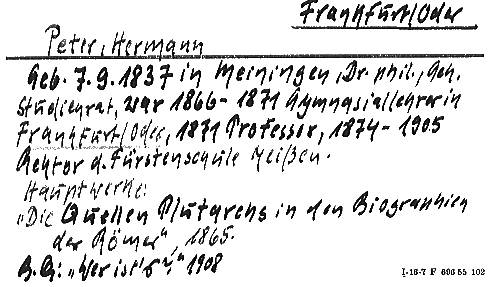 Frankfurt/Oder
Peter, Hermann
Geb. 7.9.1837 in Meiningen, Dr. phil., Geh.
Studienrat, war 1866-1871 Gymnasiallehrer in
Frankfurt/Oder, 1871 Professor, 1874-1905
Rektor d. Fürstenschule Meißen.
Hauptwerke:
"Die Quellen Plutarchs in den Biographien
der Römer", 1865.
B.Q.: "Wer ist's?" 1908
I-16-7 F 606 55 102